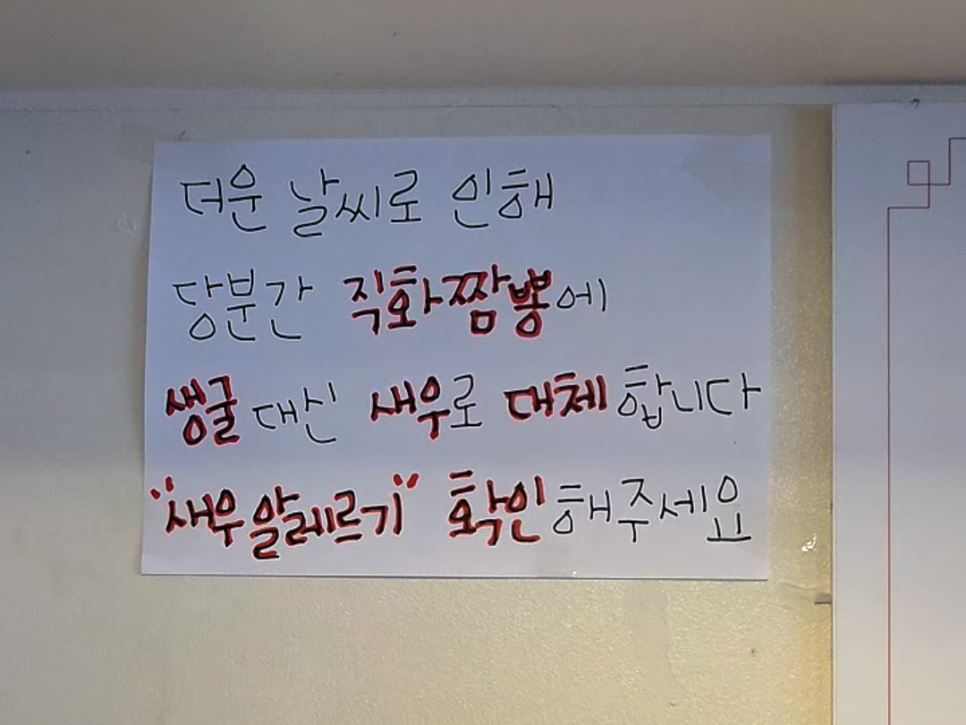 더운 날씨로 인해
당분간 직화짬뽕에
생굴 대신 새우로 대체합니다
"새우알레르기" 확인해주세요